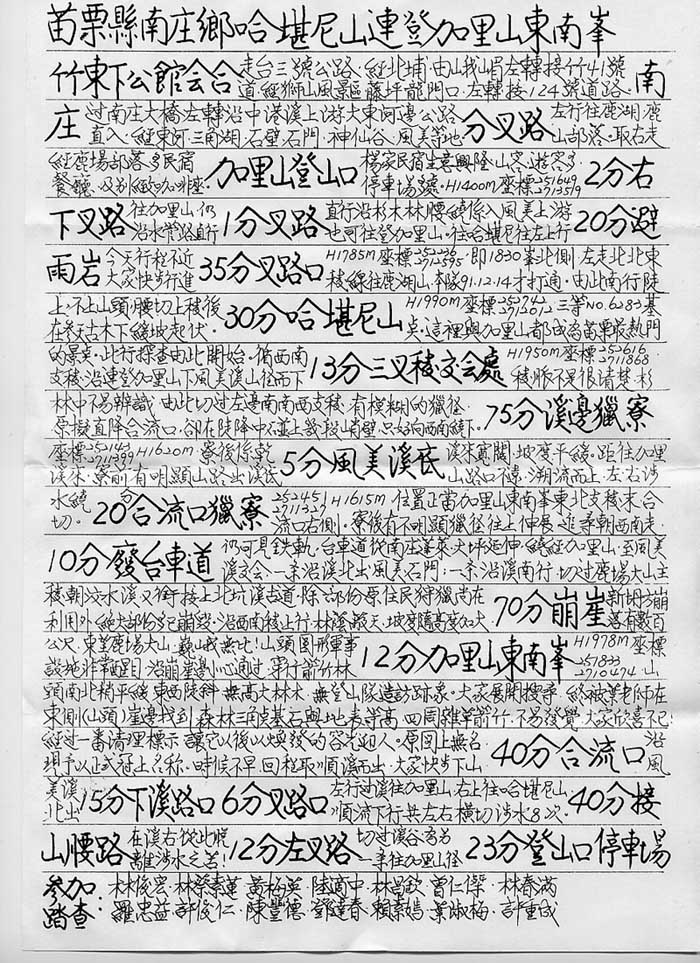 苗栗縣南庄鄉哈堪尼山連登加里山東南峯
竹東下公館会合 走台三號公路、經北埔、由山我嵋左轉接竹41號道、經獅山風景區藤坪龍門口、左轉接124號道路。南
庄 过南庄大橋左轉沿中港溪上游大東河邊公路直入、經東河、三角湖、石壁石門、神仙谷、風美營地 分叉路 左行往鹿湖、鹿山部落。取右走
經鹿場部落多民宿餐廳、及別緻咖啡座。 加里山登山口 楊家民宿生意興隆、山客、遊客多、停車場多。H1400m座標 2分右
下叉路 往加里山、仍沿水管路直行 1分叉路 直行沿杉木林腰繞係入風美上游也可往登加里山。往哈堪尼往左上行 20分避
雨岩 今天行程不近大家快步行進 35分叉路口 H1785m座標 即1830峯北側、左走北北東稜線往鹿湖山、本隊91.12.14才打通。由此南行陡
上、不上山頭、腰切上稜後在參天古木下緩坡起伏。 30分哈堪尼山 H1990m座標 三等No.6283基點、這裡與加里山都成為苗栗最熱門
的景点。此行探查由此開始。循西南支稜、沿連登加里山下風美溪山徑而下 13分三叉稜交会處 H1950m座標 稜脈不是很清楚、杉
林中不易辨識、由此切过左邊南南西支稜、有模糊的獵徑、原擬直降合流口、卻在陡降中不並上幾段山肖壁、只好向西南繞下。 75分溪邊獵寮
座標 H1620m 寮後係乾溪床、寮前有明顯山路出溪底 5分風美溪底 溪床寬闊、坡度平緩、距往加里山路口不遠、溯流而上、左右涉
水繞切。 20分合流口獵寮 H1615m 位置正當加里山東南峯東北支稜末合流口右側。寮後有不明顯獵徑往上伸長、進尋朝西南走。
10分廢台車道 仍可見鉄軌、台車道從南庄蓬萊、大坪延伸、繞經加里山、至風美溪交会、一条沿溪北出風美石門、一条沿溪南行、切过鹿場大山主
稜朝汶水溪又銜接上北坑溪古道、除部份原住民狩獵尚在利用外、絕大部份多已崩毀。沿西南稜上行、林蔭蔽天、坡度隨高度加大。 70分崩崖 新坍方崩落有數百
公尺、東望鹿場大山、巍山我無比！山頭圓形軍事設施非常醒目、沿崩崖邊小心通过、穿行箭竹林 12分加里山東南峯 H1978m座標 2710474。山
頭南北稍平緩、東西陡斜、無高大林木、無登山隊造訪跡象。大家展開搜尋、終被葉老師在
東側(山頭)崖邊找到、森林三角点基石與地表等高、四周雜草箭竹、不易發覺、大家欣喜不已
經过一番清理標示、讓它以後以煥發的容光迎人。原圖上無名、現予以正式冠上名称。時候不早、回程取順溪而出、大家快步下山。 40分合流口 沿風
美溪北出 15分下溪路口 6分叉路口 左行过溪往加里山、右上往哈堪尼山順流下行共左右橫切涉水8次。 40分接
山腰路 在溪右、從此脫離涉水之苦！ 12分左叉路 切过溪谷為另一条往加里山徑 23分登山口停車場
參加踏查： 林俊宏、林蔡素蓮、黃梅英、陸適中、林昌欽、曾仁傑、林春滿
羅忠益、許俊仁、陳豐德、鄧達春、賴素嫣、葉淑梅、許重成